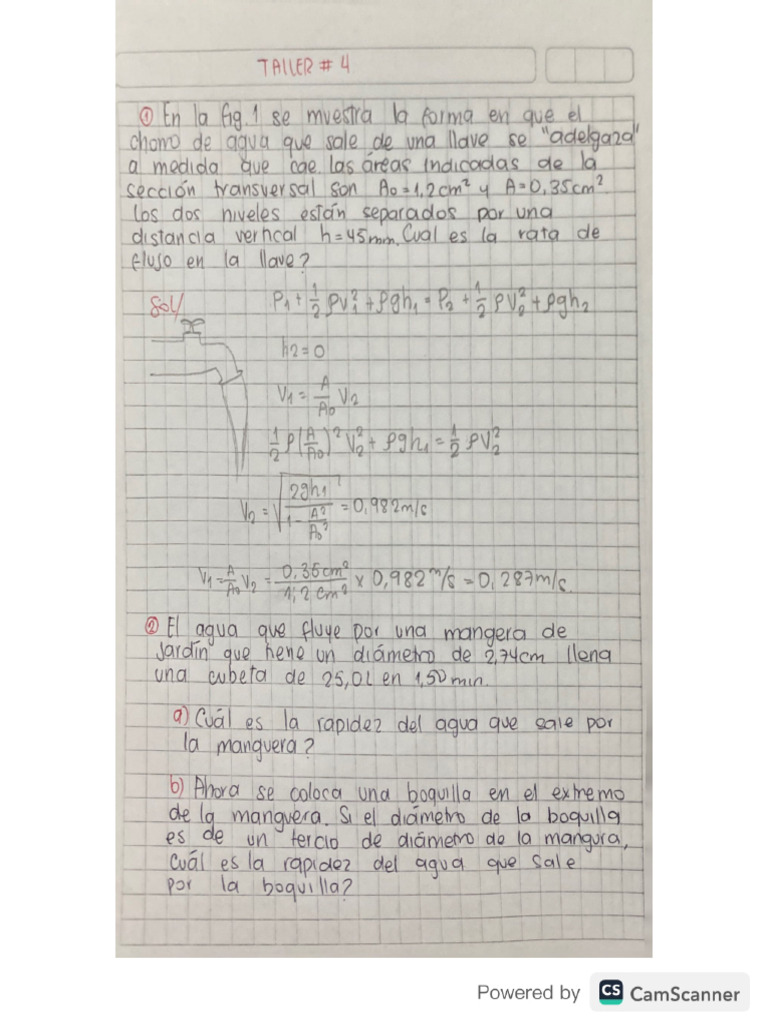 TALLER # 4
① En la fig. 1 se muestra la forma en que el
chorro de agua que sale de una llave se "adelgaza"
a medida que cae. las áreas indicadas de la
sección transversal son A₀=1,2cm² y A=0,35cm²
los dos niveles están separados por una
distancia vertical h=45mm. Cual es la rata de
fluso en la llave?
Sol/
P₁+½ρv₁²+ρgh₁=P₂+½ρV₂²+ρgh₂
h2=0
V₁=A/A₀ V₂
½ρ(A/A₀)²V₂²+ρgh₁=½ρV₂²
V₂=√(2gh₁/(1-A²/A₀²))=0,982m/s
V₁=A/A₀ V₂=0,35cm²/1,2cm² x 0,982m/s=0,287m/s.
② El agua que fluye por una mangera de
Jardín que tiene un diámetro de 2,74cm llena
una cubeta de 25,0L en 1,50min.
a) Cuál es la rapidez del agua que sale por
la manguera?
b) Ahora se coloca una boquilla en el extremo
de la manguera. Si el diámetro de la boquilla
es de un tercio de diámetro de la mangura,
Cuál es la rapidez del agua que sale
por la boquilla?
Powered by CS CamScanner